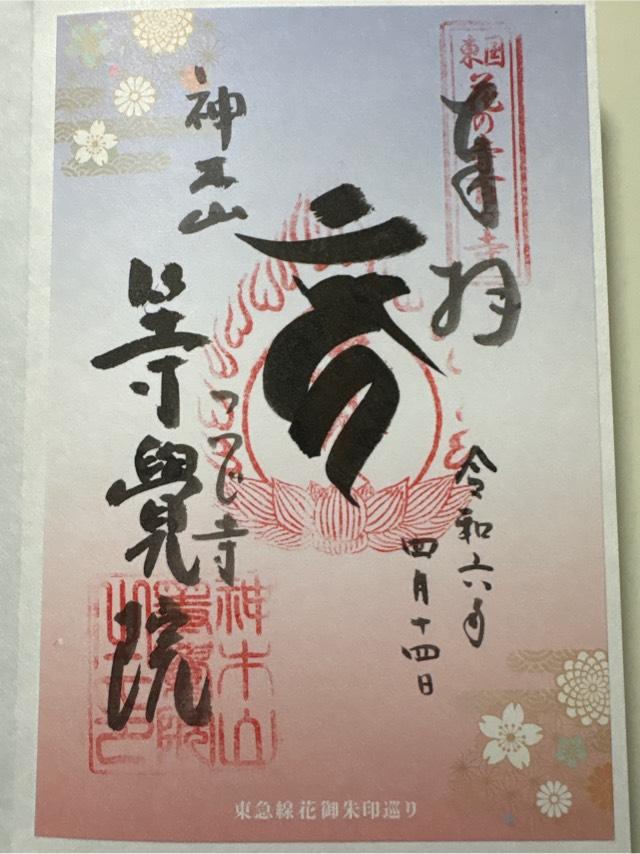 東国
花の寺
奉拝
令和六年
四月十四日
神木山
つつじ寺
等覺院
神木山
東急線花御朱印巡り